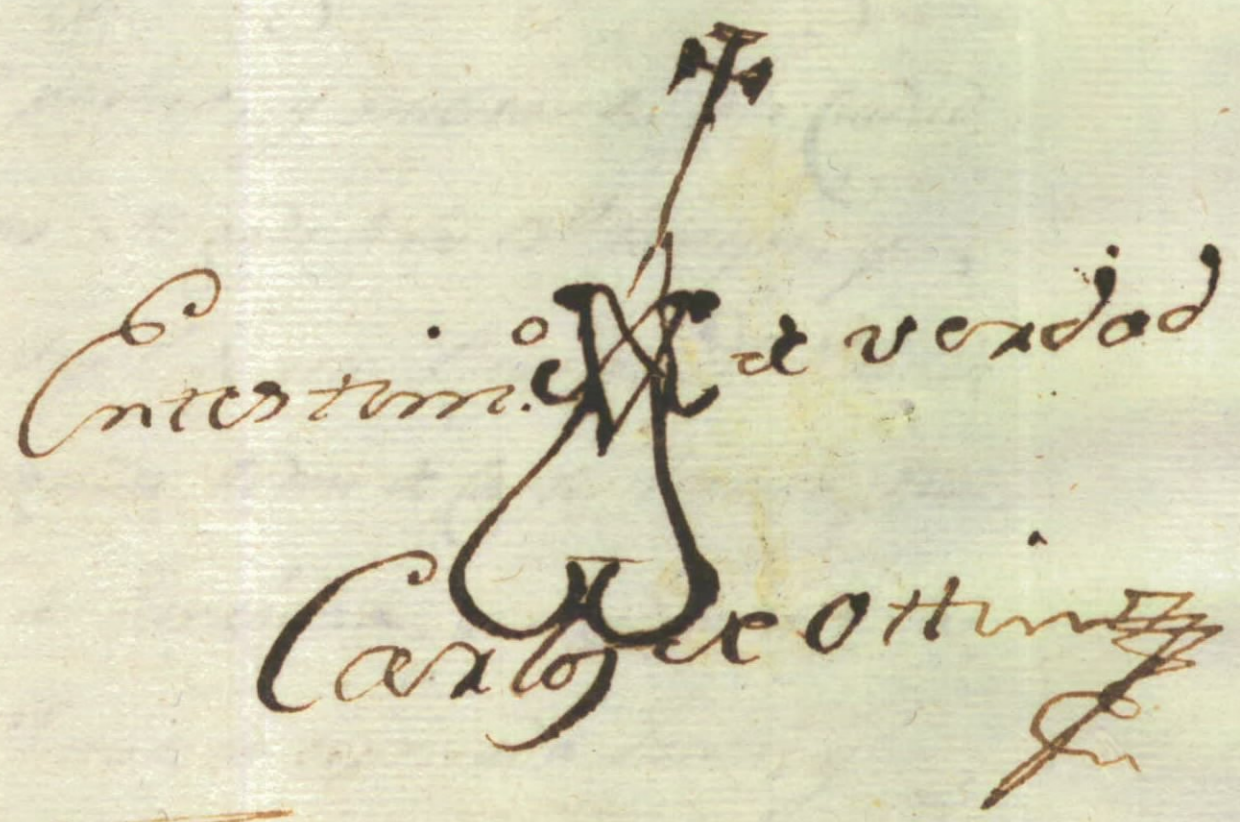 Entestim.º de verdad
Carlos de Ottin